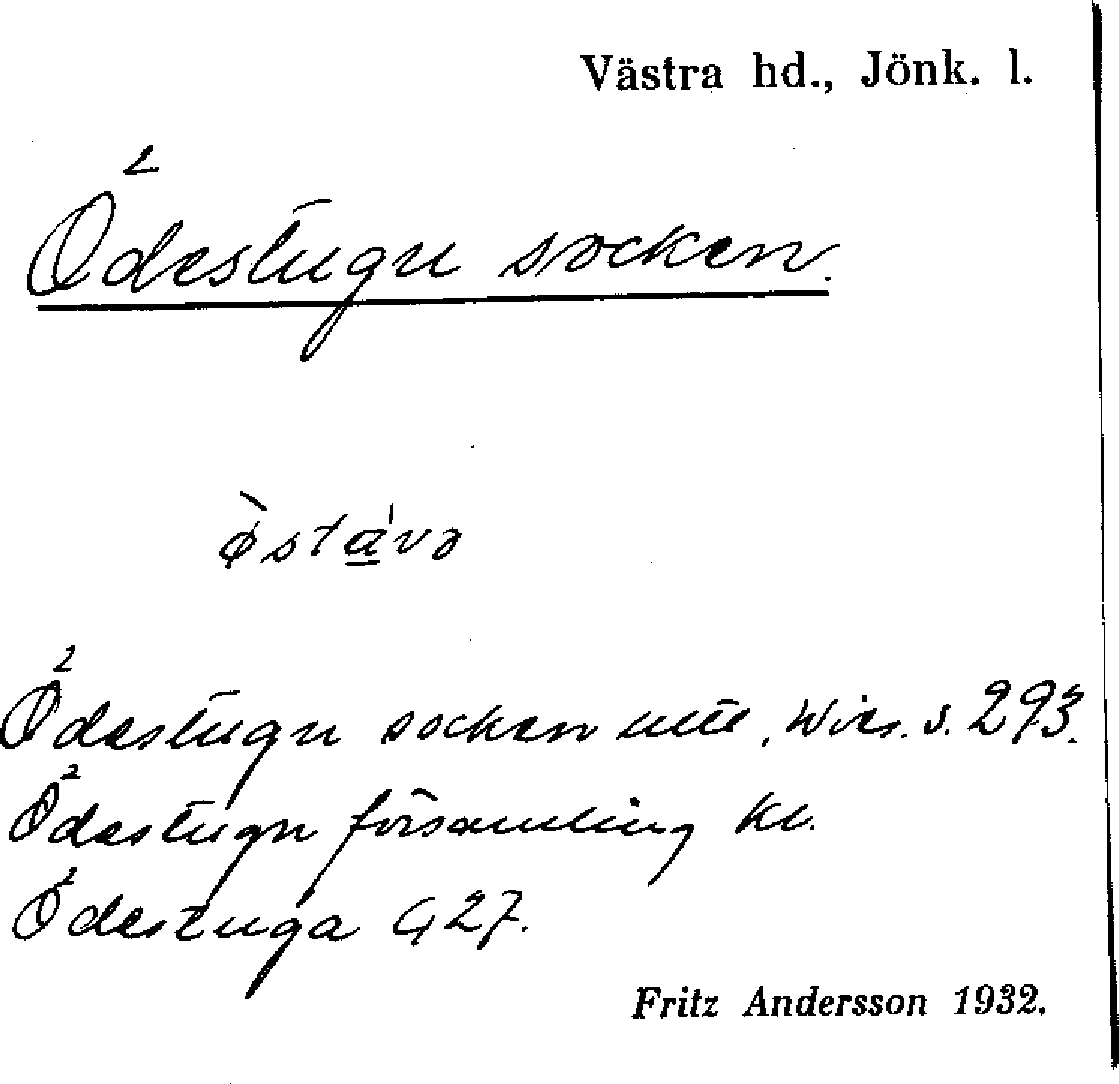 Västra hd., Jönk. l.
Ödestugu socken.
Ödestugu socken, Wies. s. 293.
Ödestugu församling kl.
Ödestuga G 27.
Fritz Andersson 1932.